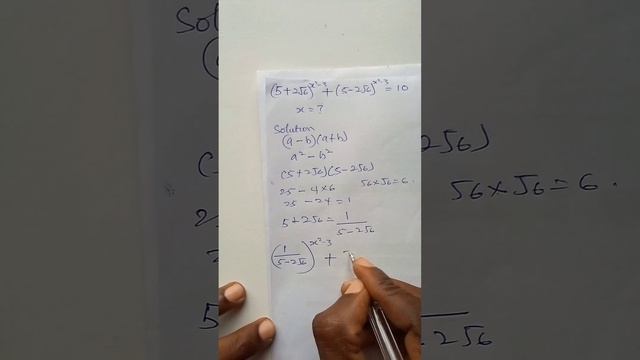 (5+2√6)^x²-3 + (5-2√6)^x²-3 = 10
x = ?
Solution
(a-b)(a+b)
a² - b²
(5+2√6)(5-2√6)
25 - 4×6 √6×√6 = 6.
25 - 24 = 1
5+2√6 = 1/(5-2√6)
(1/(5-2√6))^x²-3 +